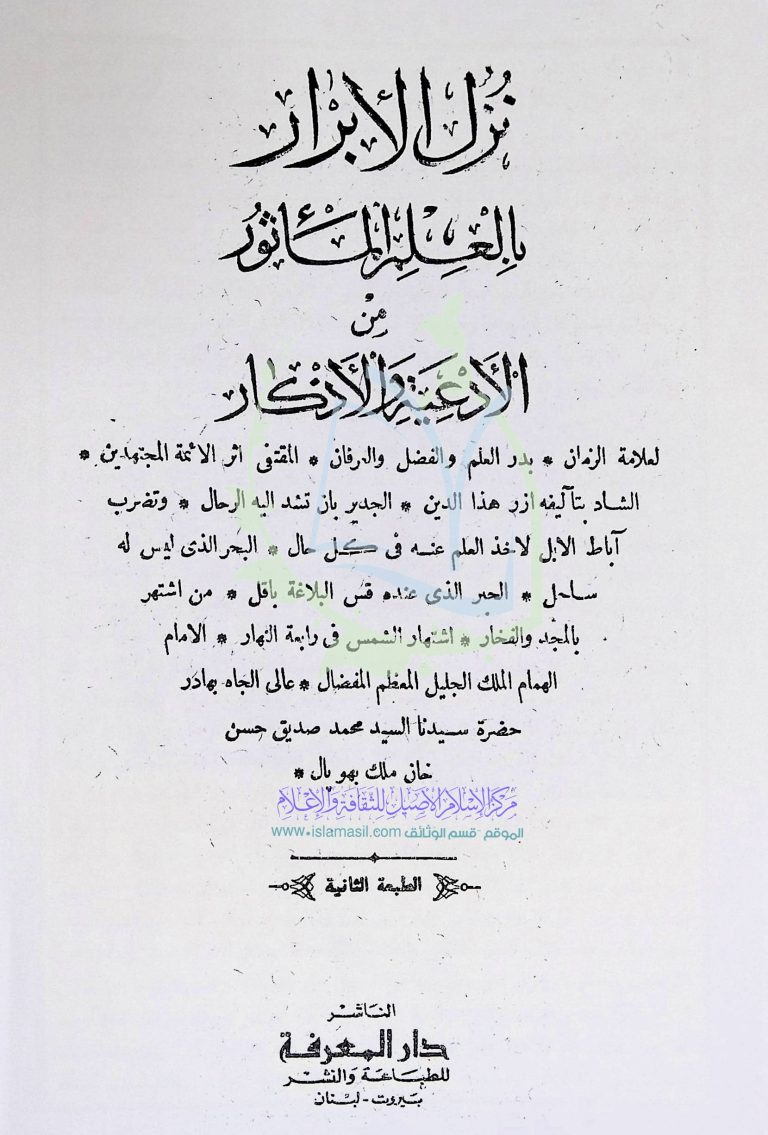 نُزُل الأبرار
بِالعِلِم المَأثورُ
مِنْ
الأَدعِيَةِ وَالأَذكار
لعلامة الزمان * بدر العلم والفضل والعرفان * المقتفى اثر الائمة المجتهدين *
الشاد بتآليفه ازر هذا الدين * الجدير بان تشد اليه الرحال * وتضرب
آباط الابل لاخذ العلم عنه فى كل حال * البحر الذى ليس له
ساحل * الحبر الذى عنده قس البلاغة باقل * من اشتهر
بالمجد والفخار * اشتهار الشمس فى رابعة النهار * الامام
الهمام الملك الجليل المعظم المفضال * عالى الجاه بهادر
حضرة سيدنا السيد محمد صديق حسن
خان ملك بهوپال *
مركز الإسلام الأصيل للثقافة والإعلام
الموقع - قسم الوثائق www.islamasil.com
الطبعة الثانية
الناشر
دار المعرفة
للطباعة والنشر
بيروت - لبنان